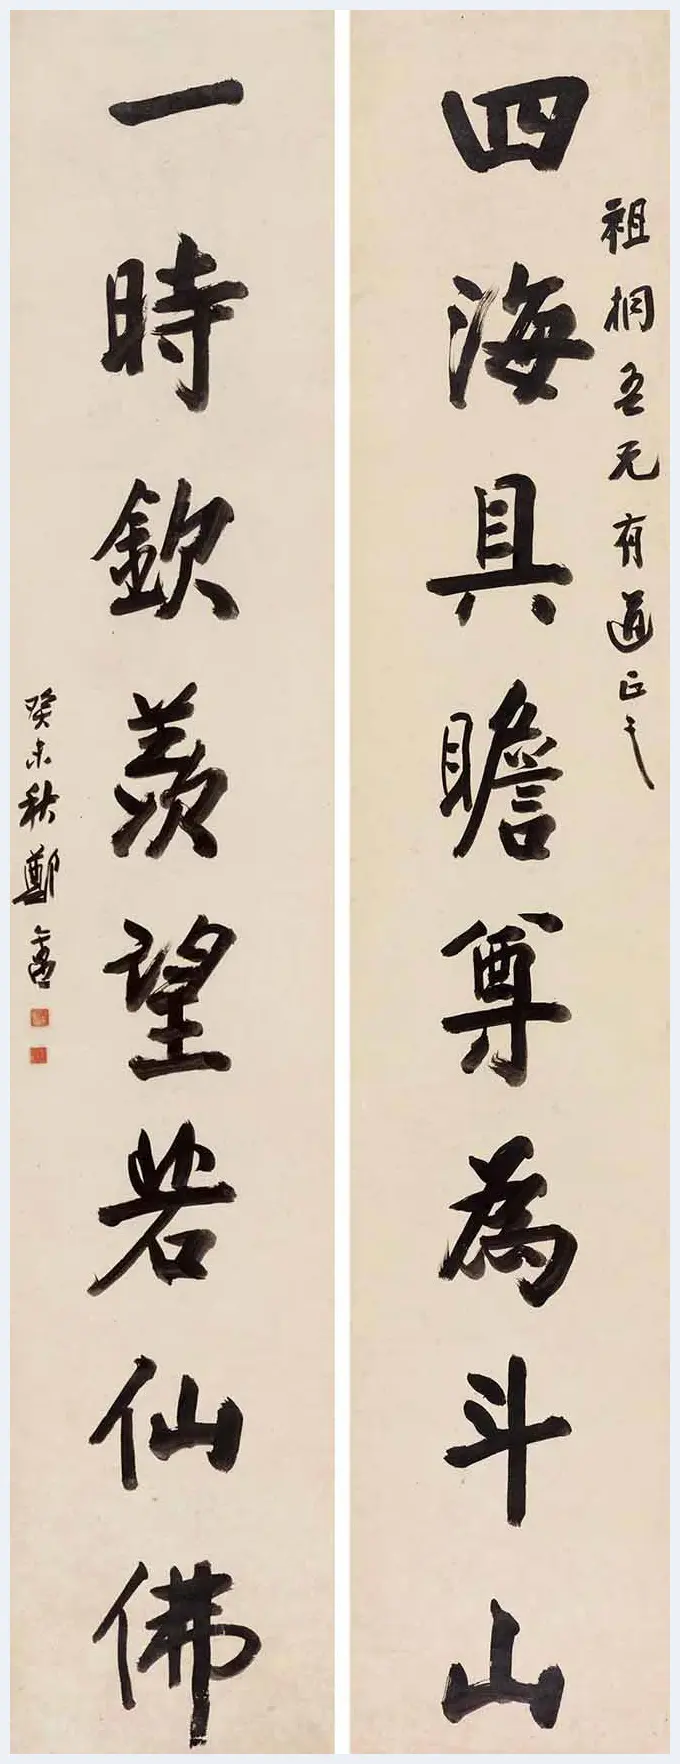 祖桐吾兄有道正之
四海具瞻尊為斗山
一時欽羨望若仙佛
癸未秋鄭